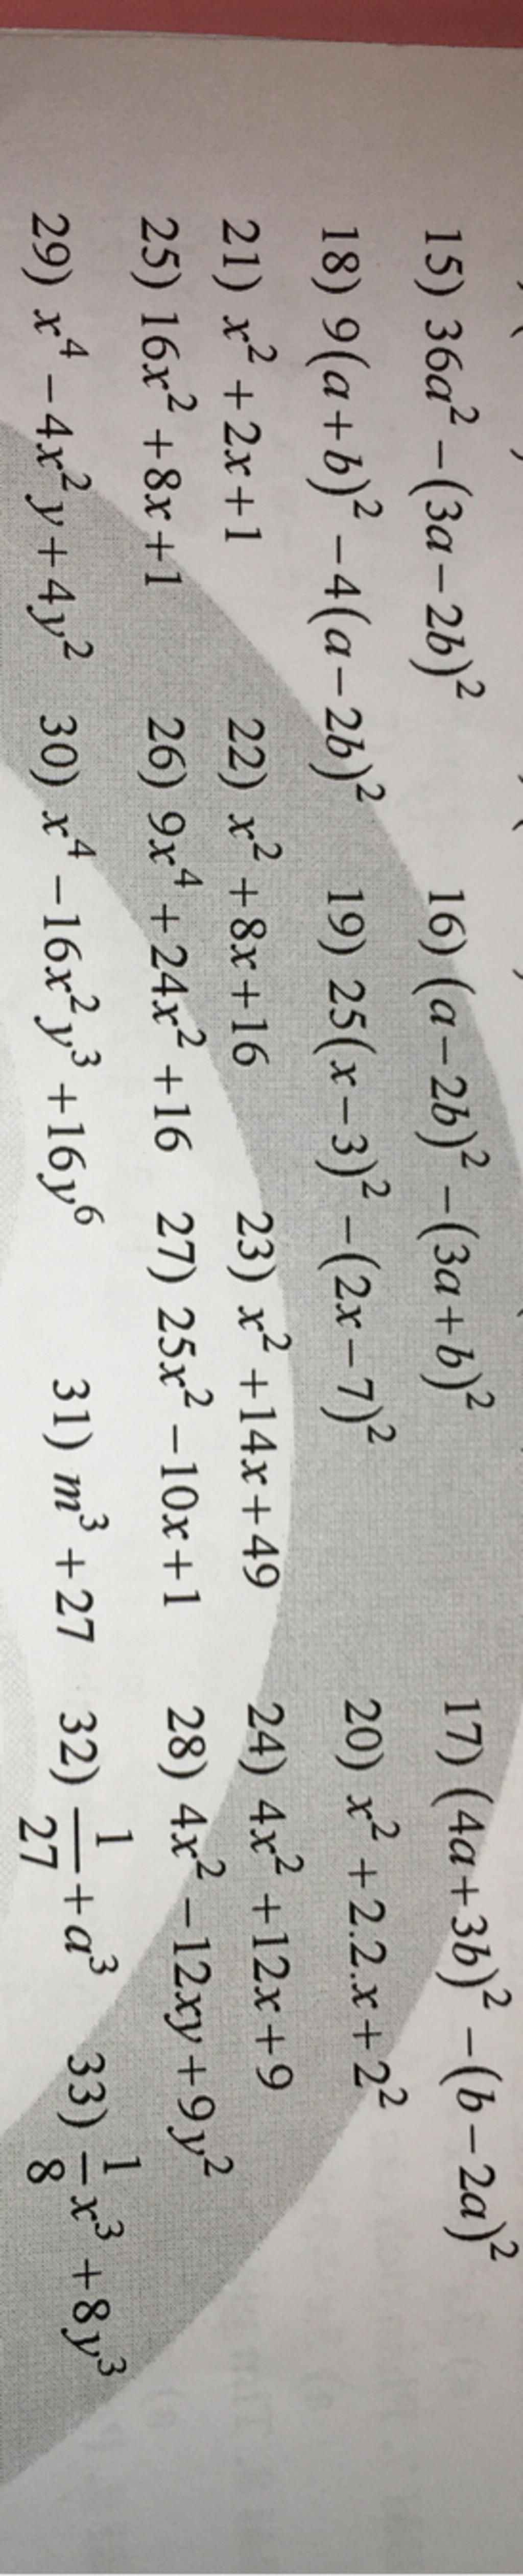 15) 36a² −(3a−2b)² 16) (a−2b)² −(3a+b)² 17) (4a+3b)² −(b−2a)²
18) 9(a+b)² −4(a−2b)² 19) 25(x−3)² −(2x−7)² 20) x² +2.2.x+2²
21) x² +2x+1 22) x² +8x+16 23) x² +14x+49 24) 4x² +12x+9
25) 16x² +8x+1 26) 9x⁴ +24x² +16 27) 25x² −10x+1 28) 4x² −12xy+9y²
29) x⁴ −4x²y+4y² 30) x⁴ −16x²y³ +16y⁶ 31) m³ +27 32) 1/27 +a³ 33) 1/8 x³ +8y³